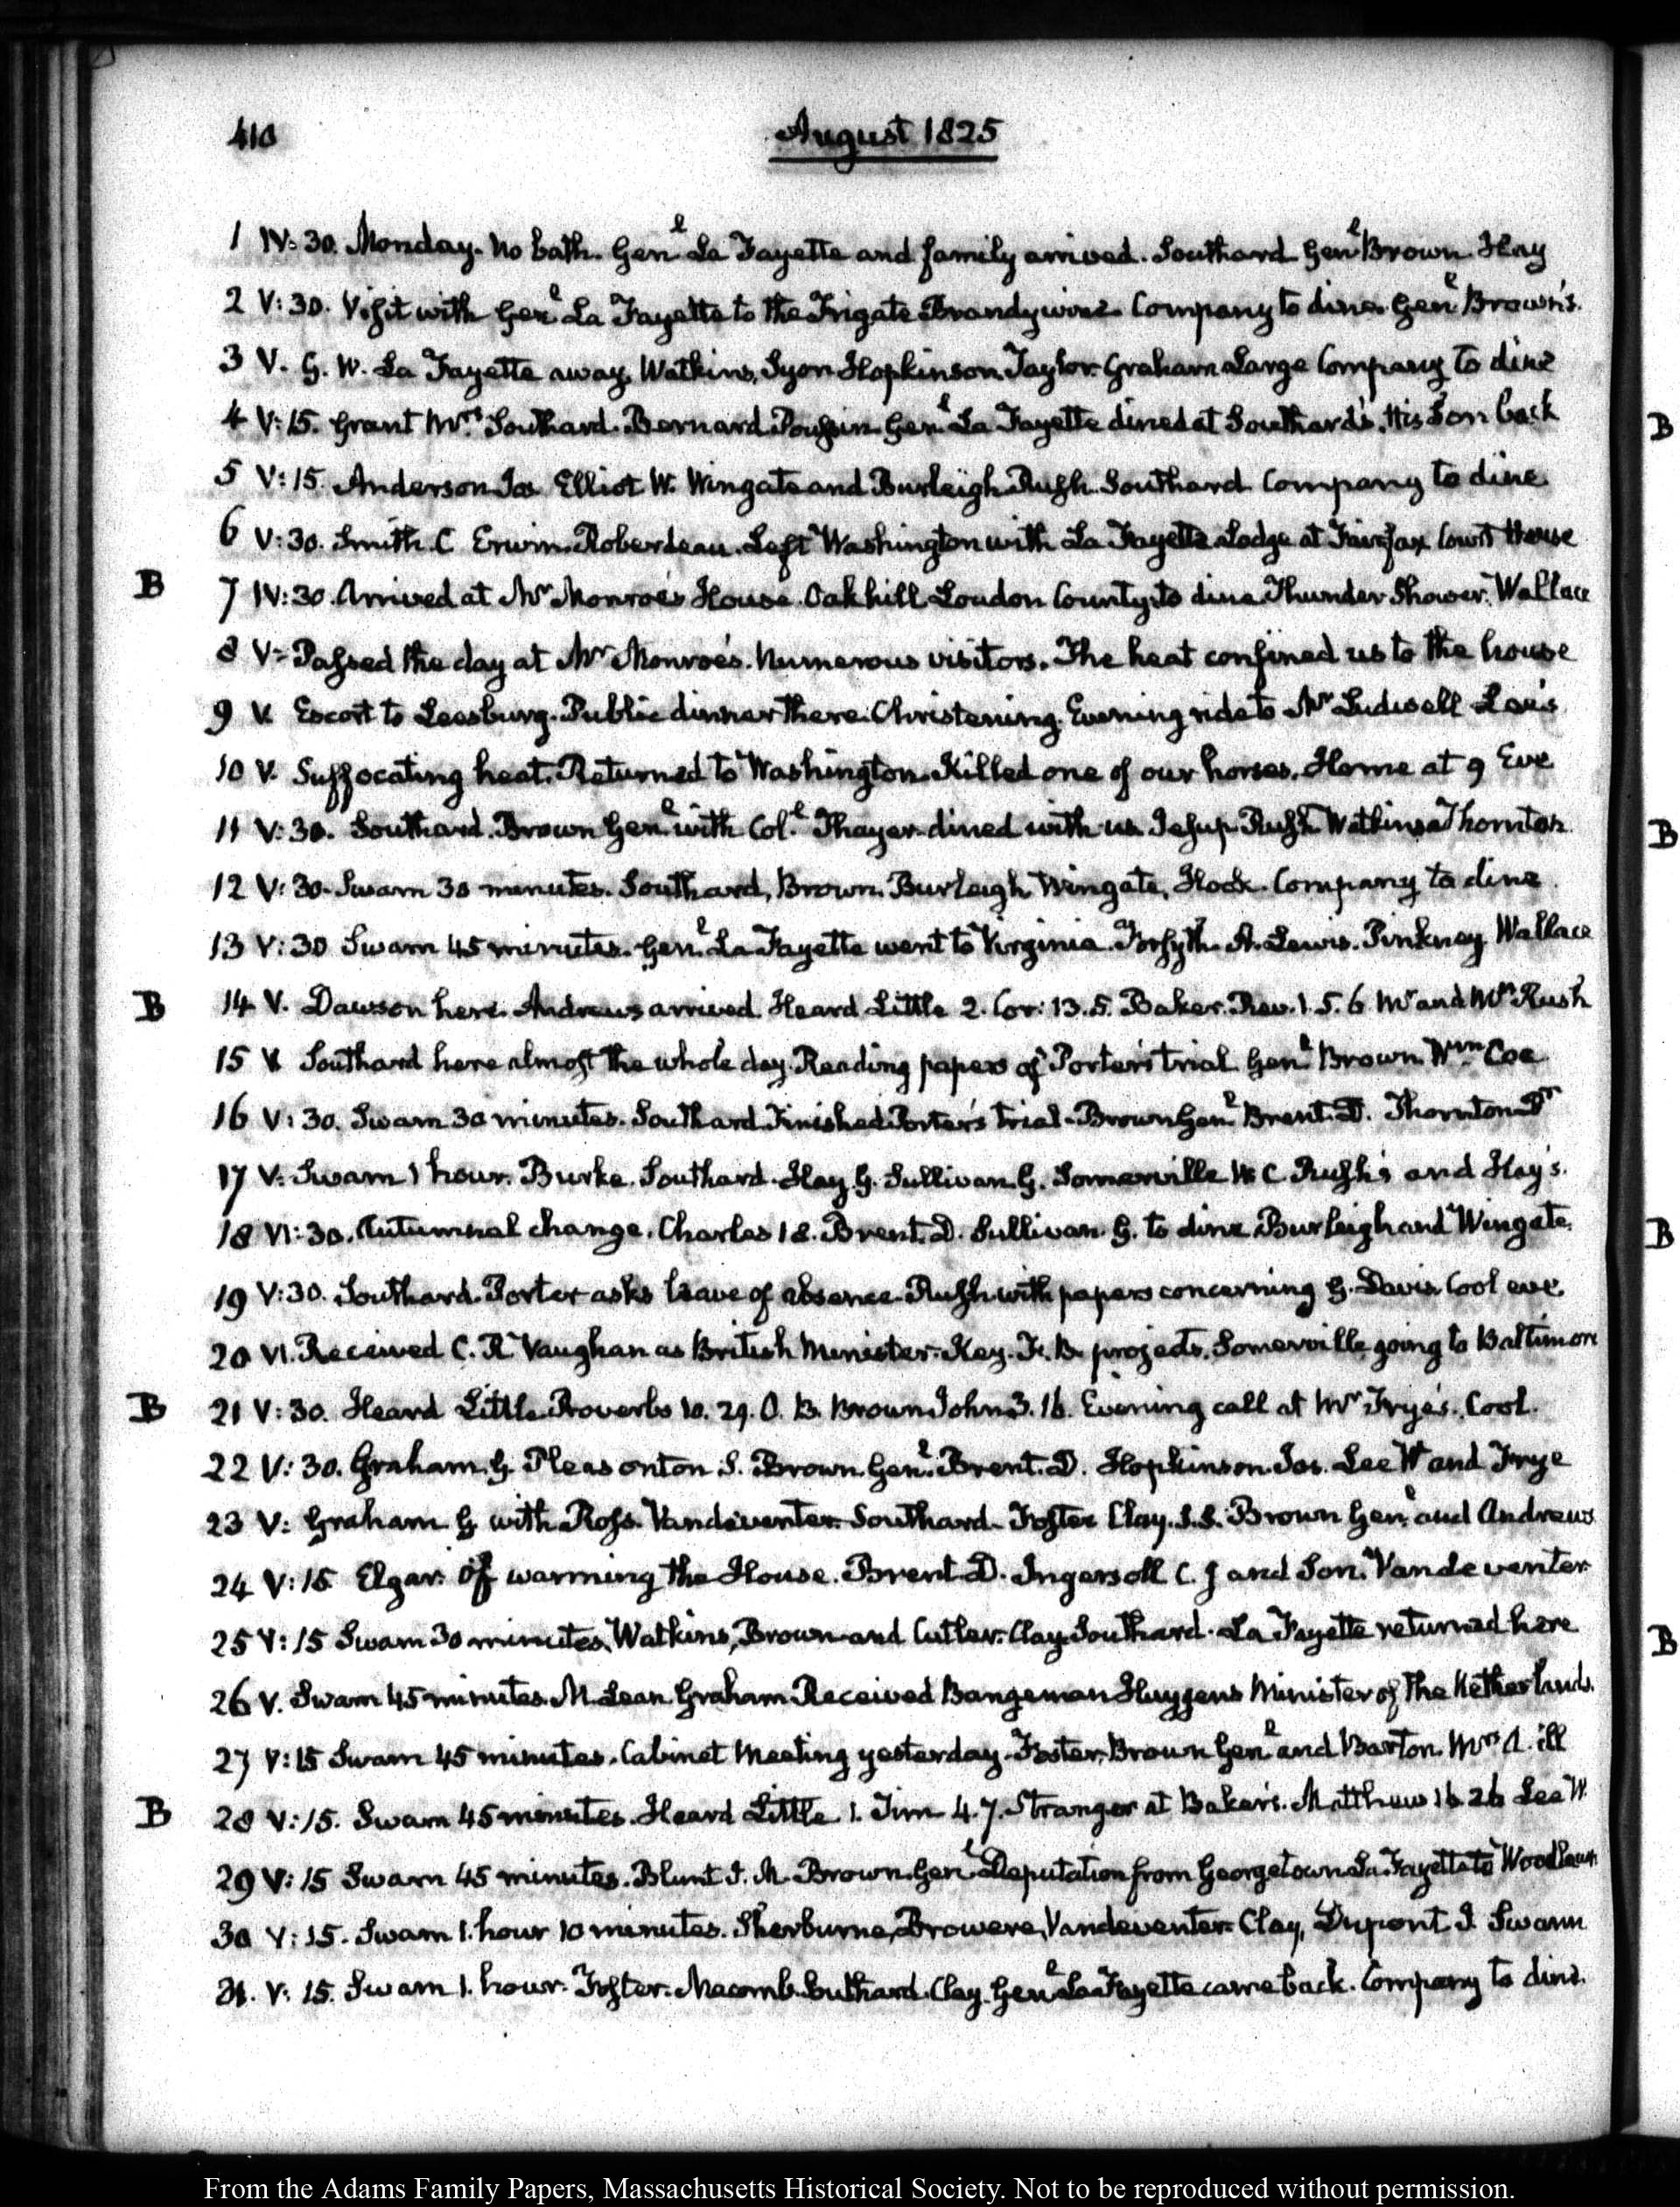 410
August 1825
1 IV: 30. Monday. No bath. Genl La Fayette and family arrived. Southard Genl Brown. Hay
2 V: 30. Visit with Genl La Fayette to the Frigate Brandywine. Company to dine. Genl Brown's.
3 V. G. W. La Fayette away. Watkins, Lyon Hopkinson. Taylor. Graham Large Company to dine
4 V: 15. Grant Mrs Southard. Bernard. Poussin. Genl La Fayette dined at Southard's. His Son back
B
5 V: 15. Anderson Jos Elliot W. Wingate and Burleigh Rush. Southard Company to dine.
6 V: 30. Smith. C Erwin. Roberdeau. Left Washington with La Fayette Lodge at Fairfax Court House
B 7 IV: 30. Arrived at Mr Monroe's House. Oakhill Loudon County, to dine. Thunder Shower. Wallace
8 V- Passed the day at Mr Monroe's. Numerous visitors. The heat confined us to the house
9 V. Escort to Leesburg. Public dinner there. Christening. Evening ride to Mr Ludwell Lee's.
10 V. Suffocating heat. Returned to Washington. Killed one of our horses. Home at 9 Eve
11 V: 30. Southard. Brown Genl with Coll Thayer. dined with us. Jesup. Rush Watkins Thornton.
B
12 V: 30. Swam 30 minutes. Southard, Brown. Burleigh Wingate, Hook. Company to dine.
13 V: 30 Swam 45 minutes. Genl La Fayette went to Virginia. Forsyth. A. Lewis. Pinkney Wallace
B 14 V. Dawson here. Andrews arrived. Heard Little 2. Cor: 13. 5. Baker. Rev. 1. 5. 6. Mr and Mrs Rush
15 V. Southard here almost the whole day. Reading papers of Porter's trial. Genl Brown. Wm Coe
16 V: 30. Swam 30 minutes. Southard. Finished Porter's trial. Brown Genl Brent. D. Thornton Dr
17 V: Swam 1 hour. Burke. Southard. Hay. G. Sullivan. G. Somerville W. C. Rush's and Hay's.
18 VI: 30. Autumnal change. Charles 18. Brent. D. Sullivan. G. to dine. Burleigh and Wingate.
B
19 V: 30. Southard. Porter asks leave of absence. Rush with papers concerning G. Davis. Cool eve.
20 VI. Received C. R. Vaughan as British Minister. Key. F. B. projects. Somerville going to Baltimore
B 21 V: 30. Heard Little. Proverbs 10. 29. O. B. Brown John 3. 16. Evening call at Mr Frye's. Cool.
22 V: 30. Graham. G. Pleasonton S. Brown. Genl. Brent. D. Hopkinson Jos. Lee W and Frye
23 V: Graham G with Ross. Vandeventer. Southard. Foster Clay. S. S. Brown Genl and Andrews
24 V: 15 Elgar. Of warming the House. Brent D. Ingersoll C. J and Son. Vandeventer
25 V: 15 Swam 30 minutes, Watkins, Brown and Cutler. Clay. Southard. La Fayette returned here
B
26 V. Swam 45 minutes. McLean Graham. Received Bangeman Huygens Minister of the Netherlands.
27 V: 15 Swam 45 minutes. Cabinet Meeting yesterday. Foster. Brown Genl and Barton. Mrs A. ill
B 28 V: 15. Swam 45 minutes. Heard Little 1. Tim 4. 7. Stranger at Baker's. Matthew 16. 26 Lee W.
29 V: 15 Swam 45 minutes. Blunt J. M. Brown. Genl Deputation from Georgetown La Fayette to Woodlawn
30 V: 15. Swam 1. hour 10 minutes. Sherburne, Browere, Vandeventer. Clay, Dupont I. Swann
31. V: 15. Swam 1. hour. Foster. Macomb. Southard. Clay. Genl La Fayette came back. Company to dine.
From the Adams Family Papers, Massachusetts Historical Society. Not to be reproduced without permission.